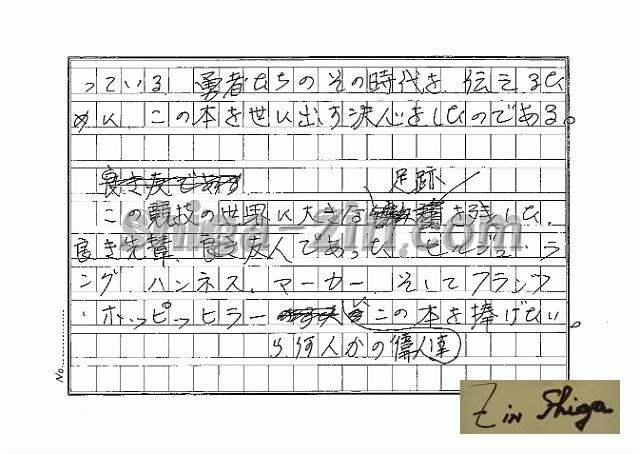 っている。勇者たちのその時代を、伝えるた
めに、この本を世に出す決心をしたのである。
足跡
この競技の世界に大きな を残した、
良き先輩、良き友人であった、セルジュ・ラ
ング、ハンネス・マーカー、そしてフランツ
・ホッピッヒラー この本を捧げたい。
ら何人かの偉人達
No.
shiga-zin.com
Zin Shiga